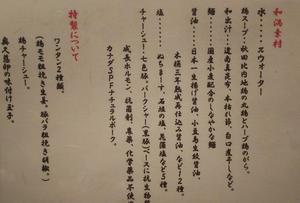 和渦素材
水…スウオーター
鶏スープ…秋田比内地鶏の丸鶏とハーブ鶏のがら。
和出汁…道南真昆布、本枯れ節、白口煮干しなど。
麺…国産小麦配合のしなやかな麺
醤油…日本一生揚げ醤油、小豆島生絞醤油、
木桶三年熟成再仕込み醤油、など12種。
塩…ぬちまーす、石垣の塩、など5種。
チャーシュー…七色豚、バークシャー(黒豚)ベースに抗生物
成長ホルモン、抗菌剤、農薬、化学薬品不使
カナダSPFナチュラルポーク。
特製について
ワンタン2種類。
(鶏モモ粗挽き生姜、豚バラ粗挽き胡椒。)
鶏チャーシュー。
奥久慈卵の味付け玉子。